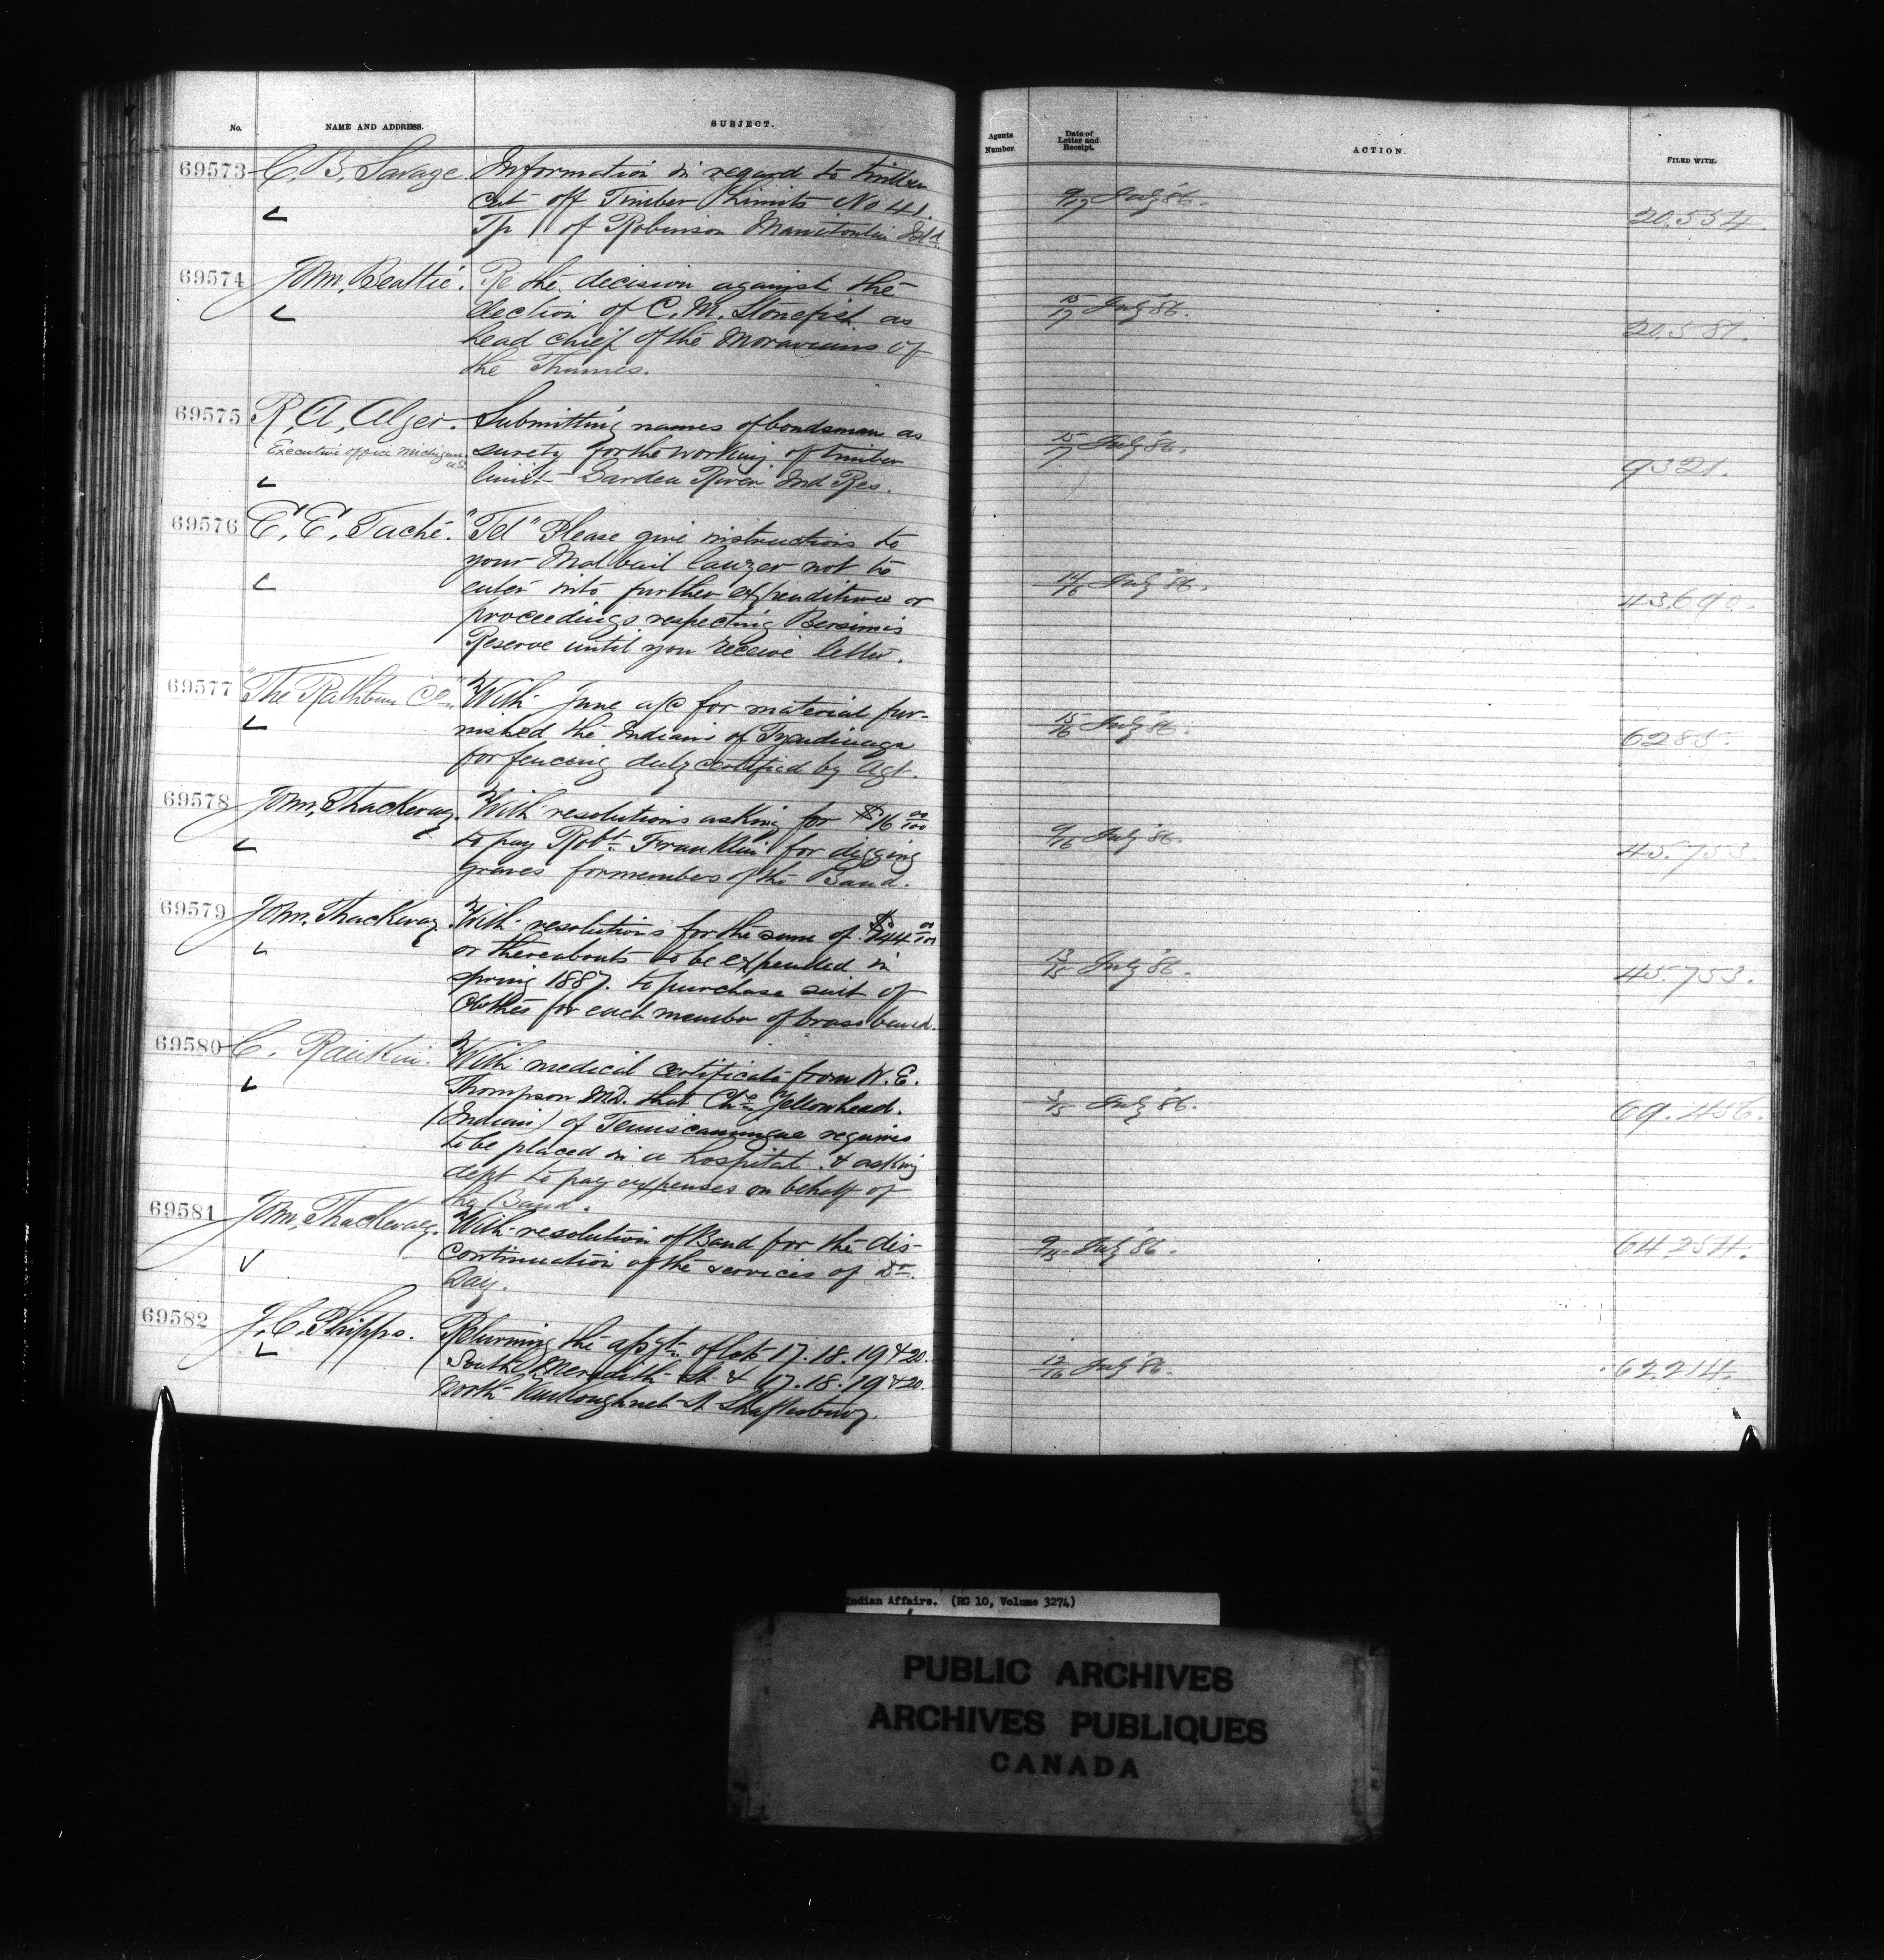 No. NAME AND ADDRESS. SUBJECT. Agents Number. Date of Letter and Receipt. ACTION. FILED WITH.
69573 C. B. Savage Information in regard to timber
cut off Timber Limits No 41. 9/17 July '86. 20,554.
Tp of Robinson Manitoulin Isld
69574 John Beattie. Re the decision against the
election of C. M. Stonefish as 15/17 July '86.
head chief of the Moravians of 20,581.
the Thames.
69575 R. A. Alger. Submitting names of bondsman as
Executive office Michigan U.S. surety for the working of timber 15/17 July '86.
limit Garden River Ind Res. 9321.
69576 E. E. Taché. "Tel" Please give instructions to
your Malbail lawyer not to
enter into further expenditure or 14/16 July '86. 43,690.
proceedings respecting Bersimis
Reserve until you receive letter.
69577 "The Rathbun Co." With June a/c for material fur-
nished the Indians of Tyendinaga 15/16 July '86. 6285.
for fencing duly certified by Agt.
69578 John Thackeray. With resolutions asking for $16 00/100
to pay Robt. Franklin for digging 9/16 July '86. 45.753.
graves for members of the Band.
69579 John Thackeray. With resolutions for the sum of $144 00/100
or thereabouts to be expended in 13/15 July '86. 45.753.
spring 1887. to purchase suit of
clothes for each member of brass band.
69580 C. Rankin. With medical certificate from W. E.
Thompson M.D. that Chs. Yellowhead. 3/15 July '86. 69.456.
(Indian) of Temiscamingue requires
to be placed in a hospital. & asking
dept to pay expenses on behalf of
the Band.
69581 John Thackeray. With resolution of Band for the dis-
continuation of the services of Dr. 9/15 July '86. 64.254.
Day.
69582 J. C. Phipps. Returning the assgt. of lots 17. 18. 19 & 20.
South Meredith St. & 17. 18. 19 & 20. 12/16 July '86. 62.214.
North Vankoughnet St Shaftesbury.
Indian Affairs. (RG 10, Volume 3274)
PUBLIC ARCHIVES
ARCHIVES PUBLIQUES
CANADA